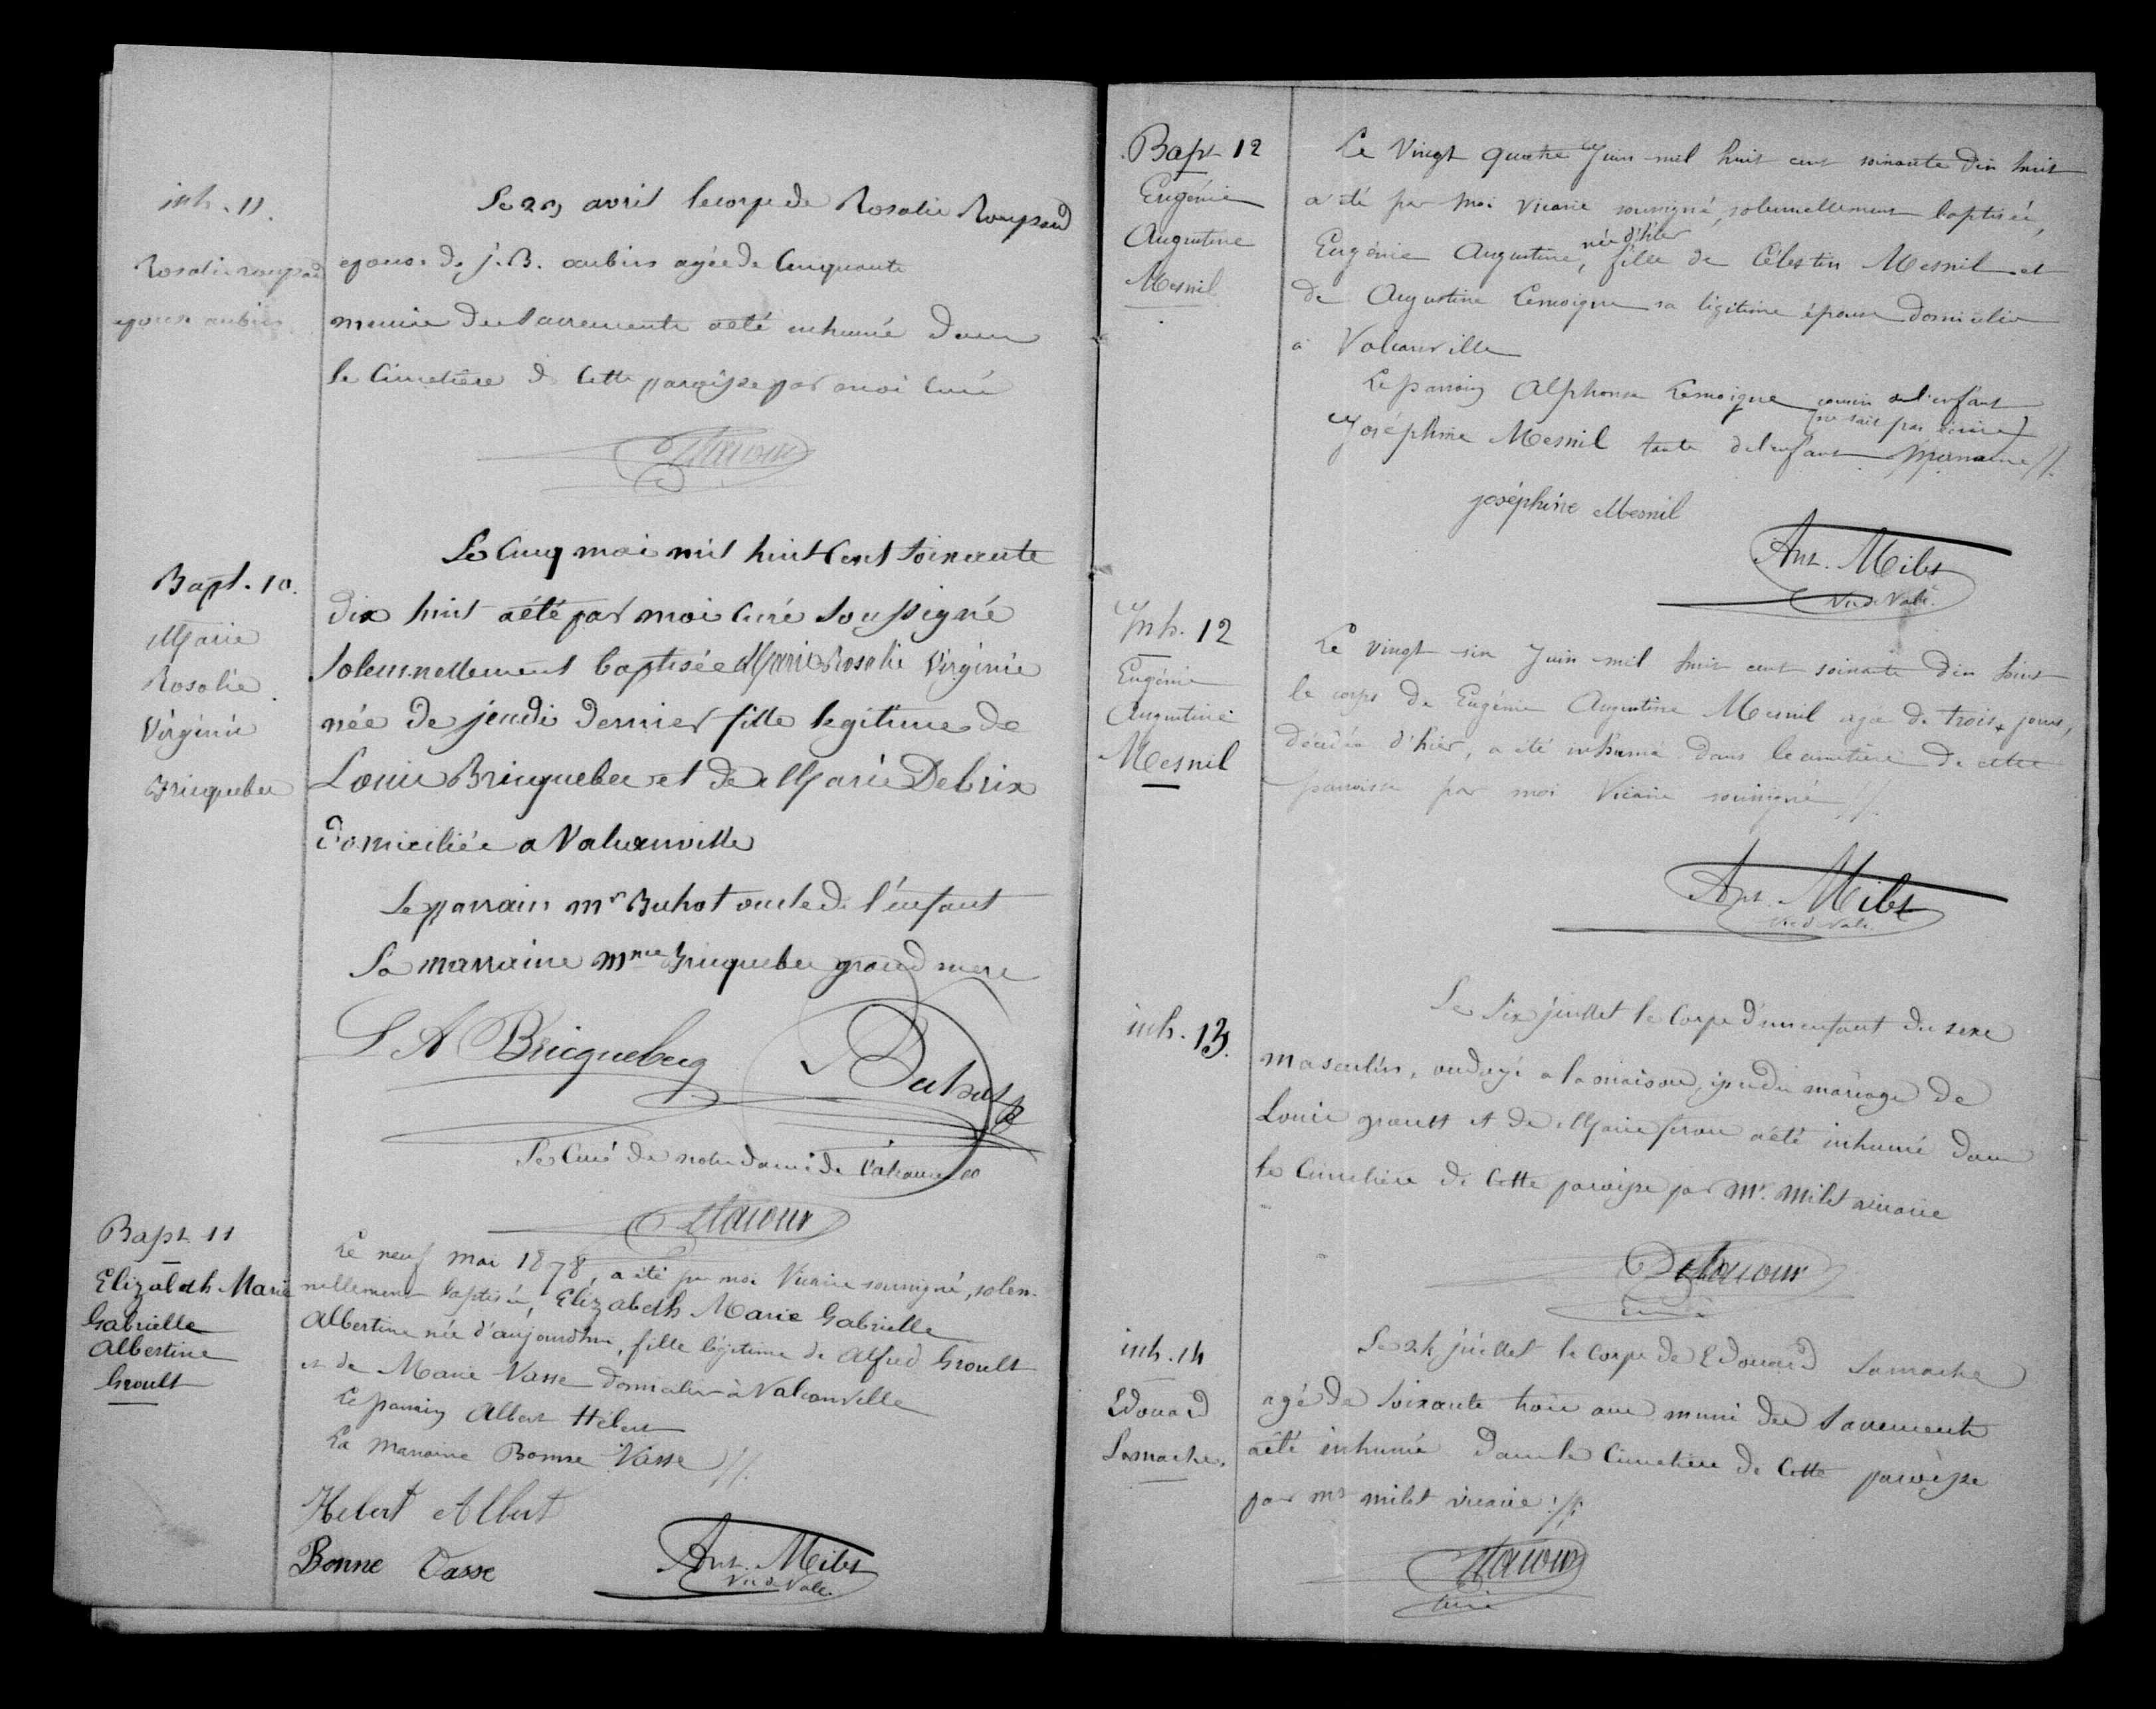 inh. 11.
Rosalie roupsard
epouse aubin
Le 29 avril le corps de Rosalie Roupsard
epouse de J. B. aubin agée de Cinquante
munie des Sacrements a été inhumé dans
le Cimetière de Cette paroisse par moi Curé
Bapt. 10.
Marie
Rosalie
Virginie
Bricquebec
Le Cinq mai mil huit Cent Soixante
dix huit a été par moi Curé Soussigné
Solennellement baptisée Marie Rosalie Virginie
née de jeudi dernier fille legitime de
Louis Bricquebec et de Marie Debrix
domiciliée a Valcanville
Le parrain mr Buhot oncle de l'enfant
La marraine mme Bricquebec grand mere
L A Bricquebecq Buhot
Le Curé de notre dame de Valcanville
Bapt 11
Elizabeth Marie
Gabrielle
Albertine
Groult
Le neuf mai 1878, a été par moi Vicaire soussigné, solen-
nellement baptisée, Elizabeth Marie Gabrielle
Albertine née d'aujourd'hui, fille légitime de Alfred Groult
et de Marie Vasse domiciliés à Valcanville
Le parrain Albert Hébert
La Marraine Bonne Vasse //.
Hebert Albert
Bonne Vasse
Ant. Milet
Vic de Valc.
Bapt 12
Eugénie
Augustine
Mesnil
Le Vingt quatre Juin mil huit cent soixante dix huit
a été par moi Vicaire soussigné, solennellement baptisée,
Eugénie Augustine, née d'hier fille de Célestin Mesnil et
de Augustine Lemoigne sa légitime épouse domiciliés
à Valcanville
Le parrain Alphonse Lemoigne cousin de l'enfant
(ne sait pas écrire)
Joséphine Mesnil tante de l'enfant Marraine //.
joséphine Mesnil
Ant. Milet
Vic de Valc.
Inh. 12
Eugénie
Augustine
Mesnil
Le vingt six Juin mil huit cent soixante dix huit
le corps de Eugénie Augustine Mesnil agée de trois jours,
décédée d'hier, a été inhumé dans le cimetière de cette
paroisse par moi Vicaire soussigné //.
Ant. Milet
Vic de Valc.
inh. 13.
Le Six juillet le Corps d'un enfant du sexe
masculin, ondoyé a la maison, issu du mariage de
Louis groult et de Marie a été inhumé dans
le Cimetière de Cette paroisse par Mr. Milet vicaire
inh. 14
Edouard
Lamache.
Le 24 juillet le Corps de Edouard Lamache
agé de Soixante trois ans muni des Sacrements
a été inhumé dans le Cimetière de Cette paroisse
par mr milet vicaire //.
Curé